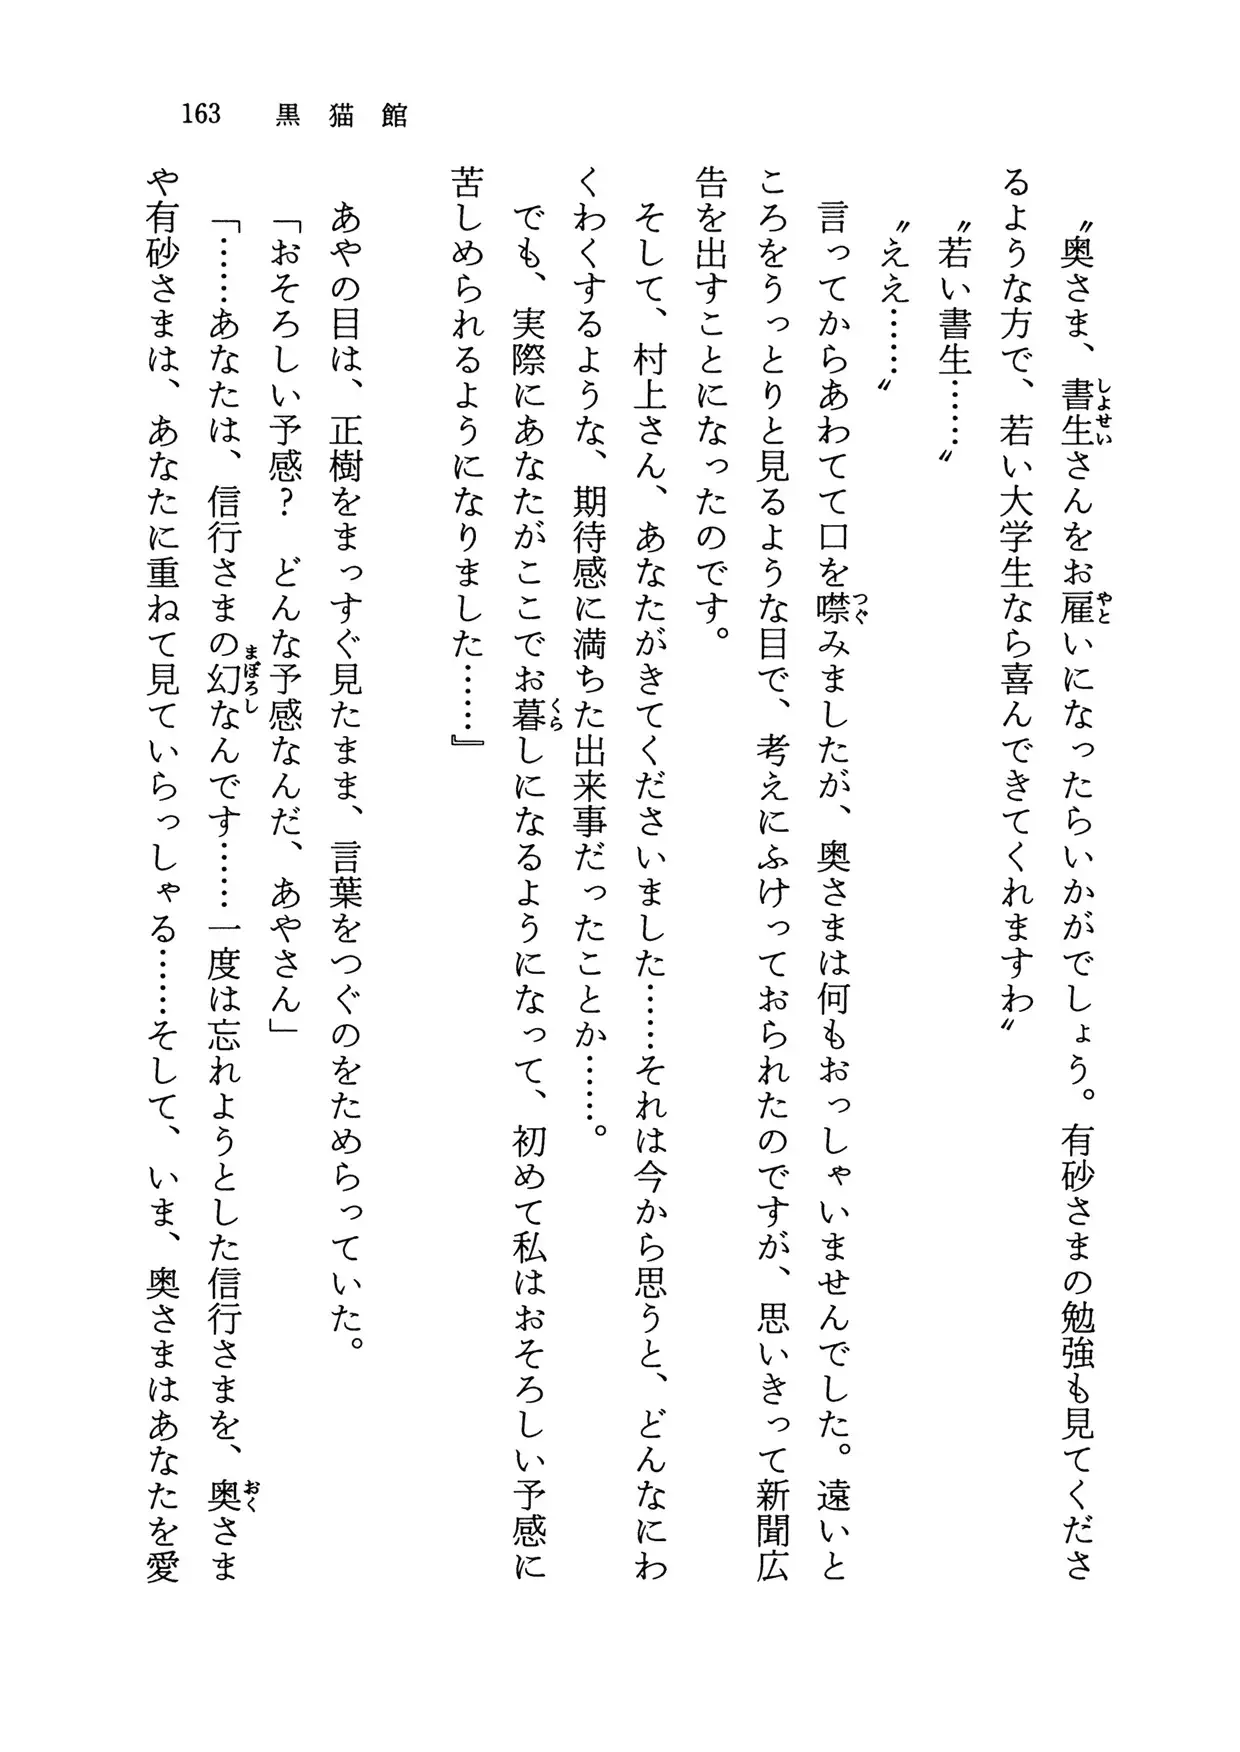 163 黒猫館
〝奥さま、書生さんをお雇いになったらいかがでしょう。有砂さまの勉強も見てくださ
るような方で、若い大学生なら喜んできてくれますわ〟
〝若い書生……〟
〝ええ……〟
言ってからあわてて口を噤みましたが、奥さまは何もおっしゃいませんでした。遠いと
ころをうっとりと見るような目で、考えにふけっておられたのですが、思いきって新聞広
告を出すことになったのです。
そして、村上さん、あなたがきてくださいました……それは今から思うと、どんなにわ
くわくするような、期待感に満ちた出来事だったことか……。
でも、実際にあなたがここでお暮しになるようになって、初めて私はおそろしい予感に
苦しめられるようになりました……』
あやの目は、正樹をまっすぐ見たまま、言葉をつぐのをためらっていた。
「おそろしい予感？　どんな予感なんだ、あやさん」
「……あなたは、信行さまの幻なんです……一度は忘れようとした信行さまを、奥さま
や有砂さまは、あなたに重ねて見ていらっしゃる……そして、いま、奥さまはあなたを愛